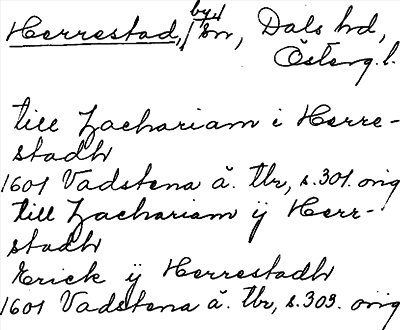 Herrestad, by i sn, Dals hd,
Österg.l.
till Zachariam i Herre-
stadh
1601 Vadstena ä. Tbr, s.301. orig
till Zachariam ÿ Herr-
stadh
Erick ÿ Herrestadh
1601 Vadstena ä. Tbr, s.303. orig